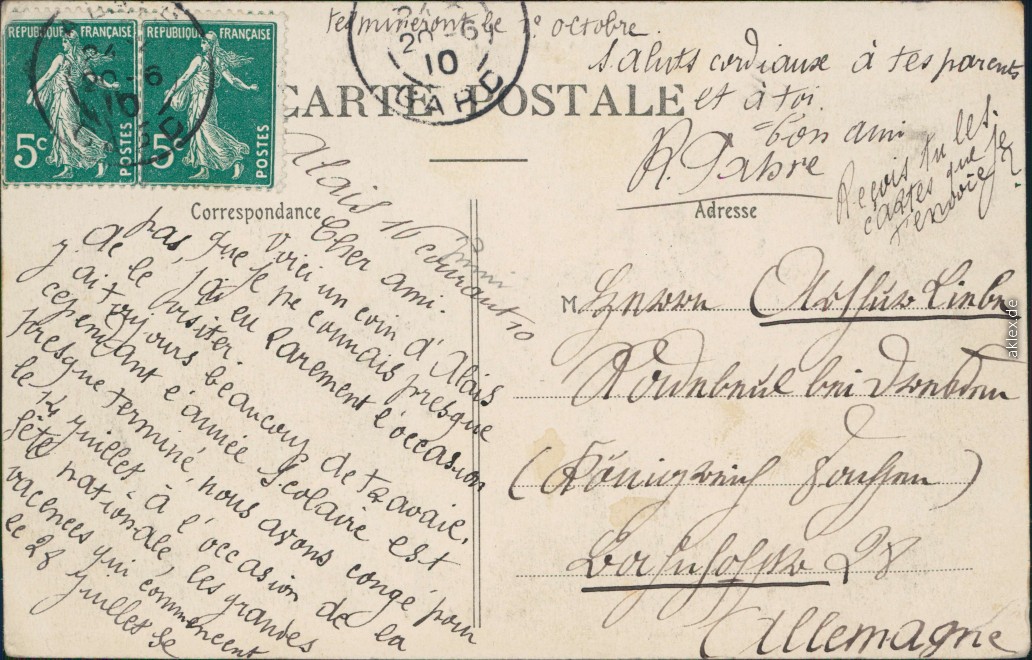 RÉPUBLIQUE FRANÇAISE
5c POSTES
RÉPUBLIQUE FRANÇAISE
5c POSTES
20-6
10
GARD
24
20-6
10
GARD
CARTE POSTALE
Correspondance
Adresse
Alais 10 courant 10
Cher ami.
Voici un coin d'Alais
pas, que je ne connais presque
j'ai eu rarement l'occasion
de le visiter.
ai toujours beaucoup de travail,
cependant l'année scolaire est
presque terminé, nous avons congé pour
le 14 juillet à l'occasion de la
fête nationale, les grandes
vacences qui commencent
le 28 juillet se
termineront le 1e octobre.
Saluts cordiaux à tes parents
et à toi.
bon ami
R. Fabre
Reçois tu les
cartes que je
t'envoie?
M. Herrn Arthur Liebe
Radebeul bei Dresden
(Königreich Sachsen)
Bahnhofstr 28
Allemagne
aklex.de